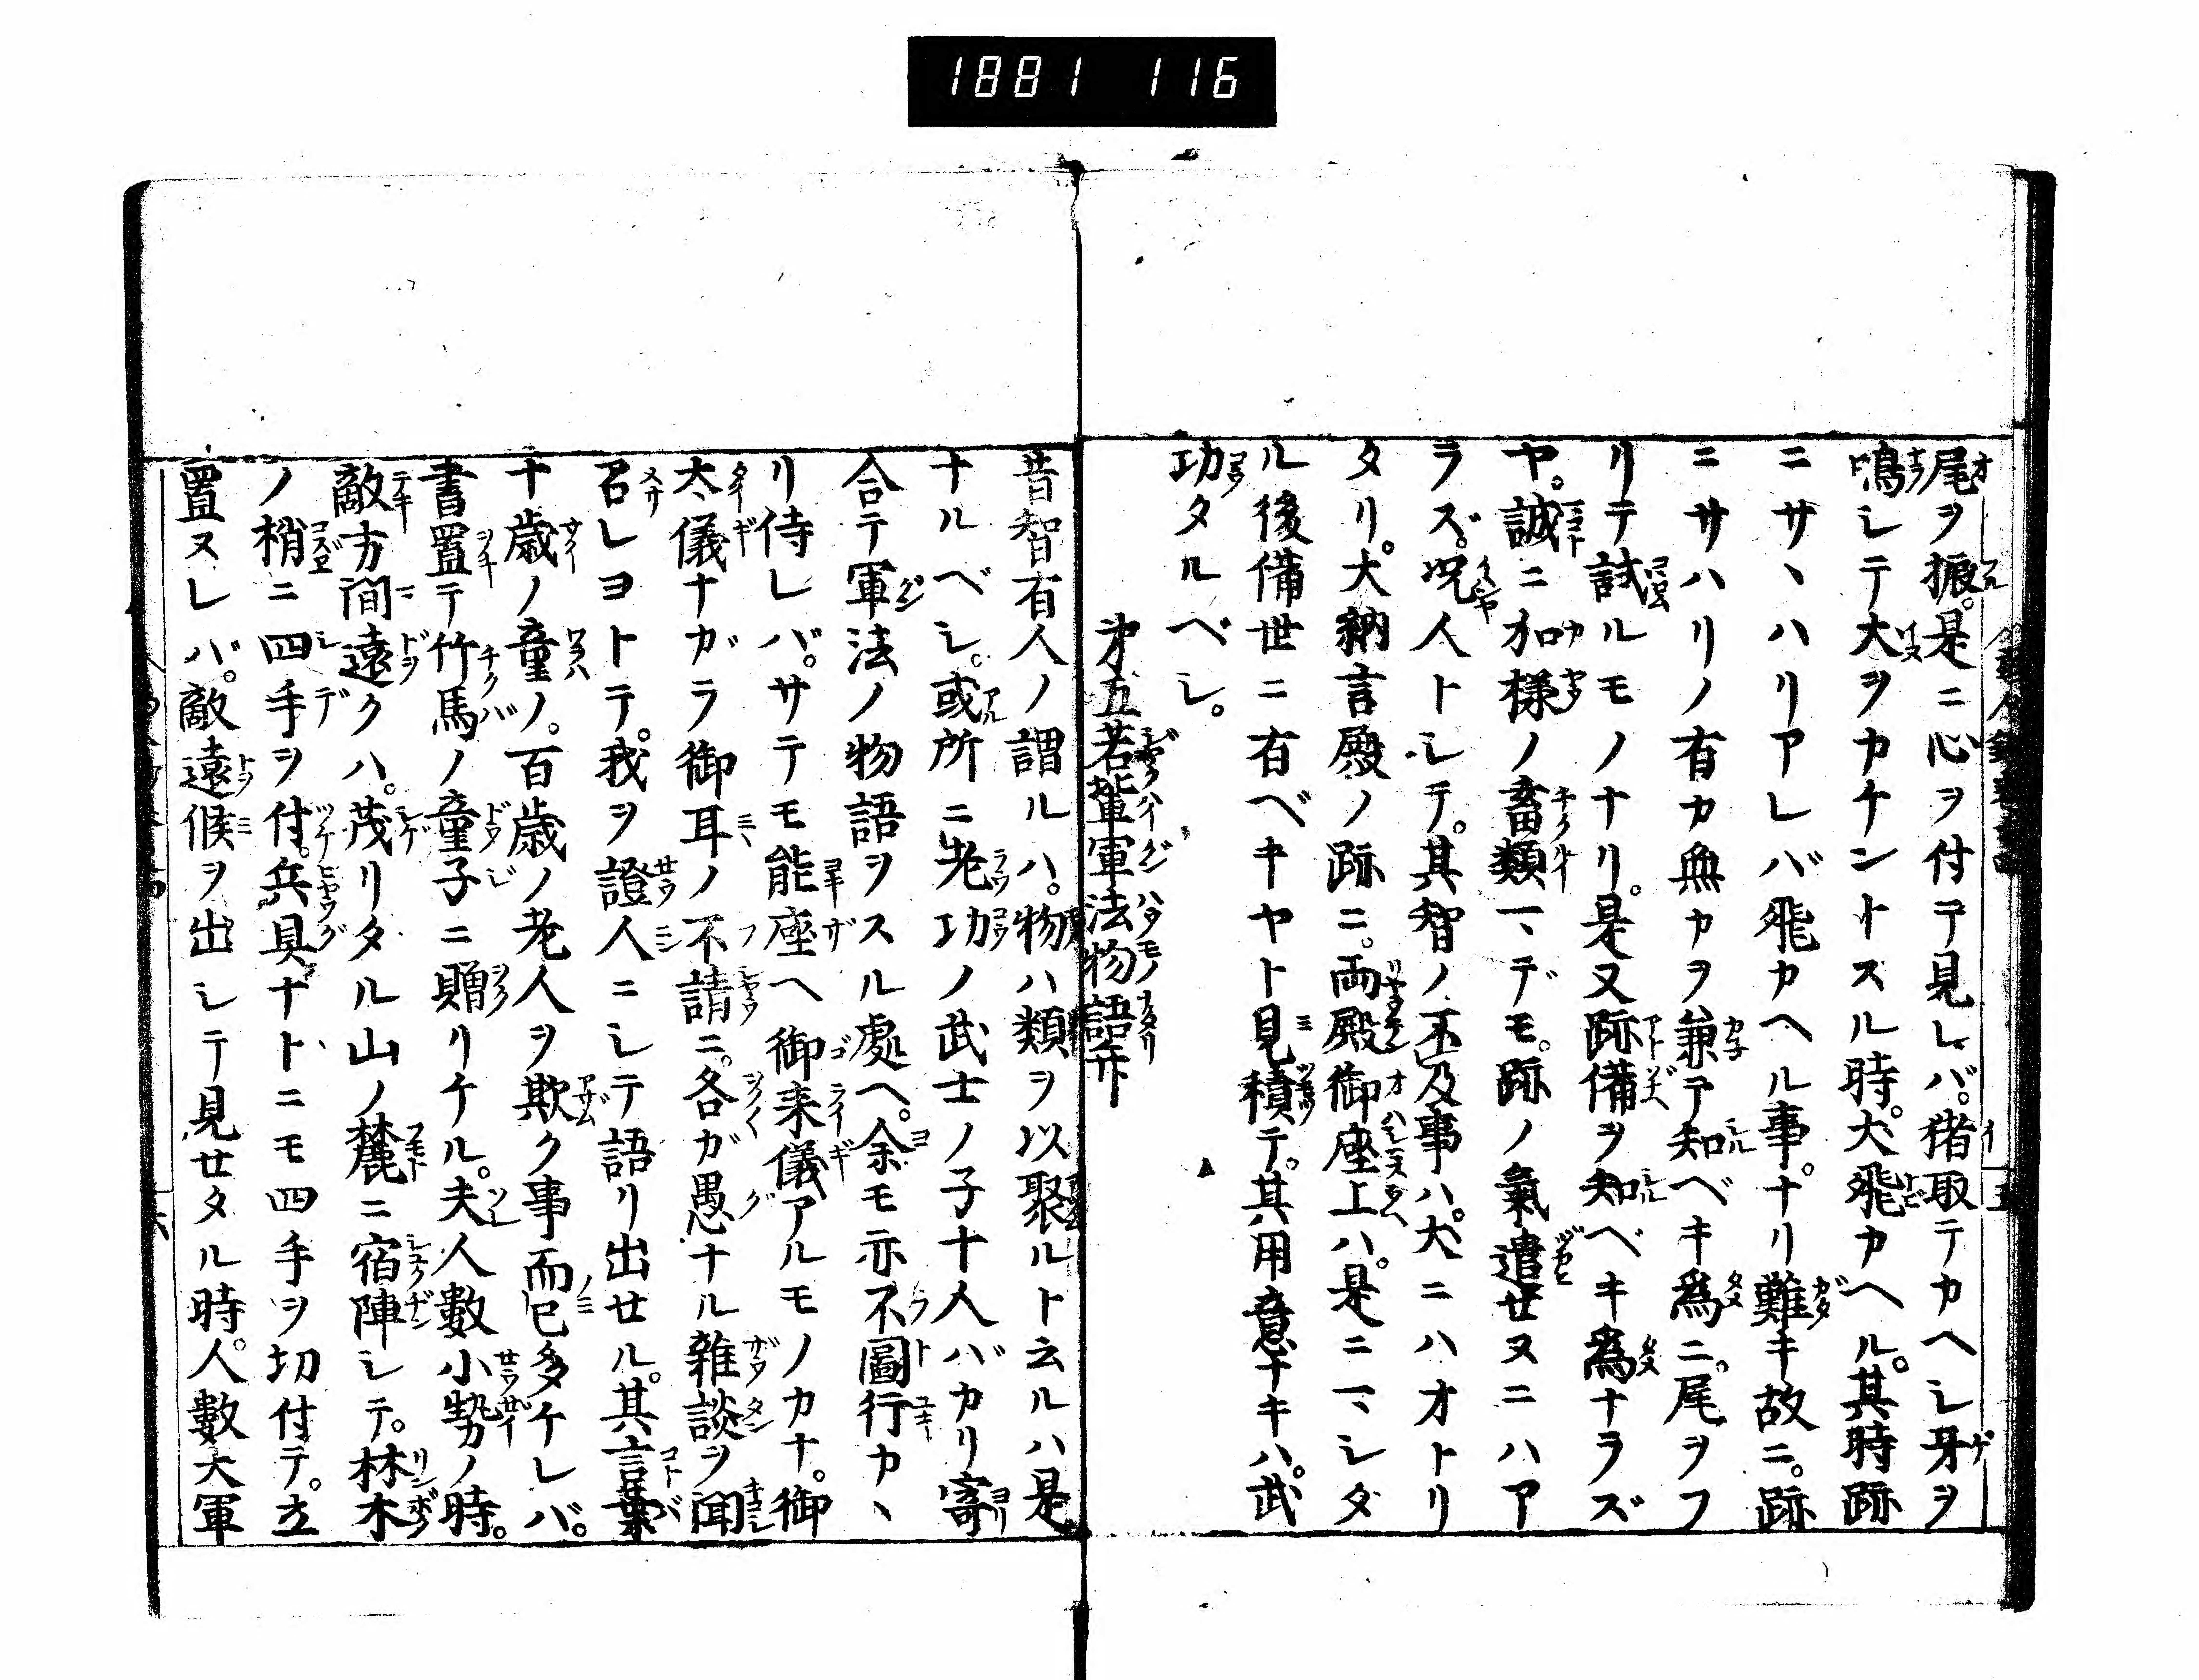 1881 116
尾ヲ振。是ニ心ヲ付テ見レバ。猪取テカヘシ牙ヲ
鳴シテ大ヲカケントスル時。犬飛カヘル。其時跡
ニサヽハリアレバ飛カヘル事。ナリ難キ故ニ。跡
ニサハリノ有カ無カヲ兼テ知ベキ為ニ。尾ヲフ
リテ試ルモノナリ。是又跡備ヲ知ベキ為ナラズ
ヤ。誠ニ加様ノ畜類マデモ。跡ノ氣遣セヌニハア
ラズ。况人トシテ。其智ノ不及事ハ。犬ニハオトリ
タリ。大納言殿ノ跡ニ。両殿御座上ハ。是ニマシタ
ル後備世ニ有ベキヤト見積テ。其用意ナキハ。武
功タルベシ。
㐧五若輩軍法物語㐧
昔智有人ノ謂ルハ。物ハ類ヲ以聚ルト云ルハ是
ナルベシ。或所ニ老功ノ武士ノ子十人バカリ寄
合テ軍法ノ物語ヲスル處ヘ。余モ亦不圖行カヽ
リ侍レバ。サテモ能座ヘ御来儀アルモノカナ。御
太儀ナガラ御耳ノ不請ニ。各ガ愚ナル雑談ヲ聞
召レヨトテ。我ヲ證人ニシテ語リ出セル。其言葉
十歳ノ童ノ。百歳ノ老人ヲ欺ク事而已多ケレバ。
書置テ竹馬ノ童子ニ贈リケル。夫人數小勢ノ時。
敵方間遠クハ。茂リタル山ノ麓ニ宿陣シテ。林木
ノ梢ニ四手ヲ付。兵具ナトニモ四手ヲ切付テ。立
置ヌレバ。敵遠候ヲ出シテ見セタル時。人數大軍